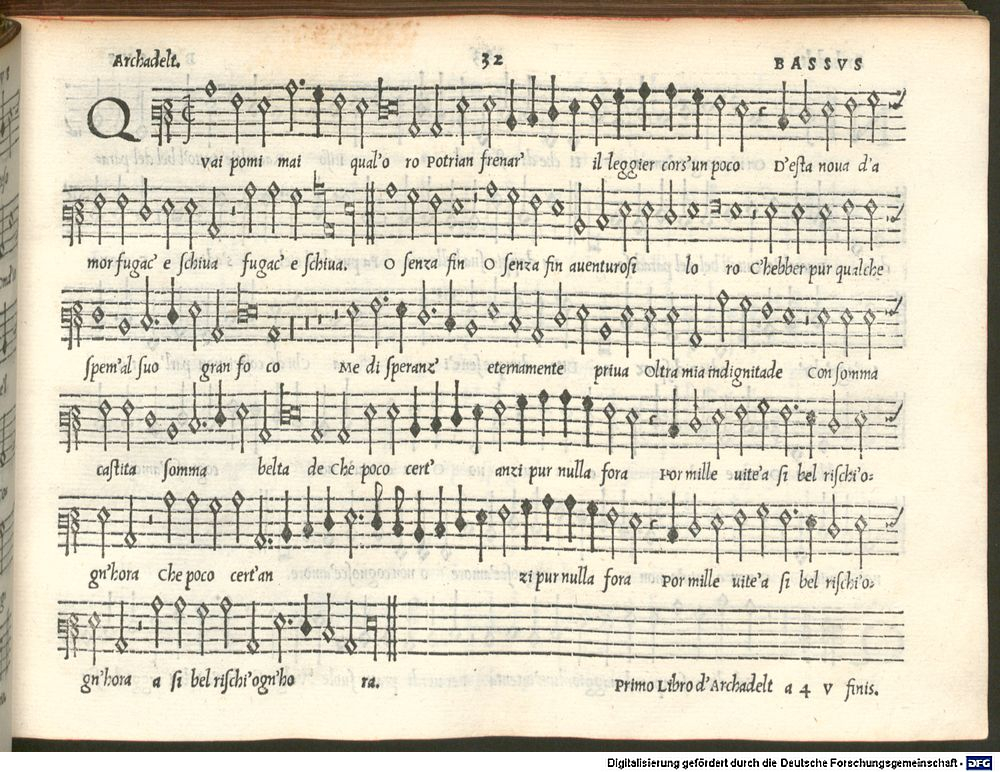 Archadelt. 32 BASSVS
QVai pomi mai qual'o ro Potrian frenar' il leggier cors'un poco D'eſta noua d'a
mor fugac' e ſchiua fugac' e ſchiua. O ſenza fin O ſenza fin auenturoſ' lo ro C'hebber pur qualche
ſpem'al ſuo gran fo co Me di ſperanz' eternamente priua Oltra mia indignitade Con ſomma
caſtita ſomma belta de Ché poco cert' anzi pur nulla fora Por mille uite'a ſi bel riſchi'o=
gn'hora Che poco cert'an zi pur nulla fora Por mille uite'a ſi bel riſchi'o=
gn'hora a ſi bel riſchi'ogn'ho ra. Primo Libro d'Archadelt a 4 V finis.
Digitalisierung gefördert durch die Deutsche Forschungsgemeinschaft - DFG